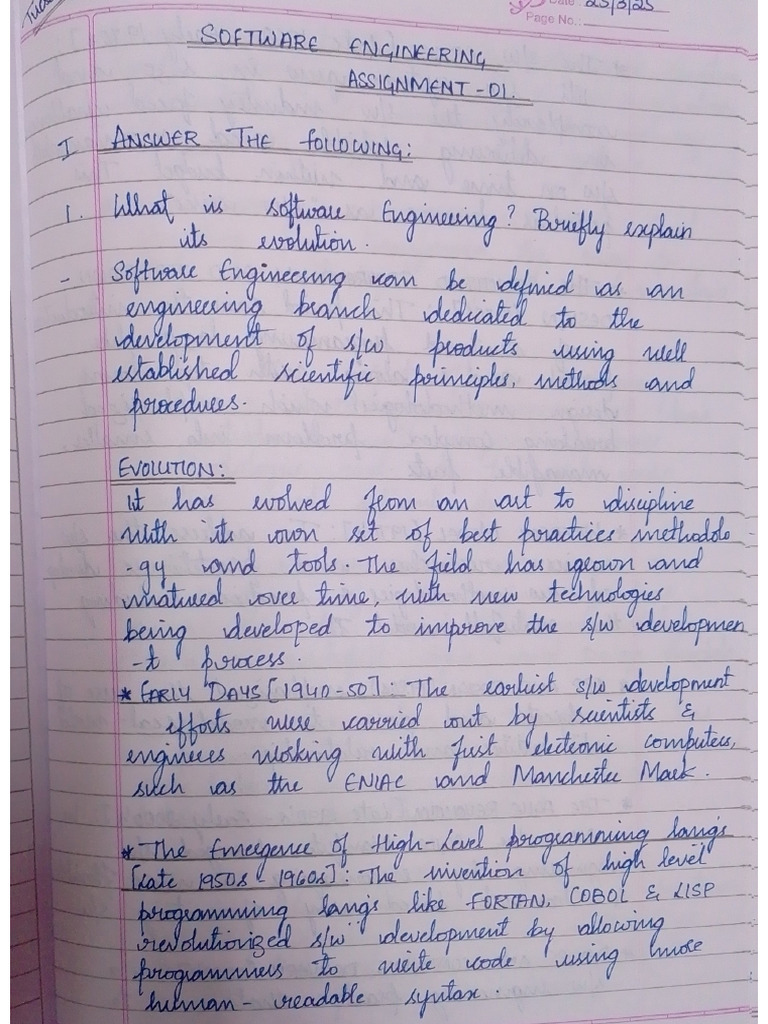 Date: 25/3/25
Page No.:
SOFTWARE ENGINEERING
ASSIGNMENT - 01.
I ANSWER THE FOLLOWING:
1. What is software Engineering? Briefly explain
its evolution.
- Software Engineering can be defined as an
engineering branch dedicated to the
development of s/w products using well
established scientific principles, methods and
procedures.
EVOLUTION:
It has evolved from an art to discipline
with its own set of best practices methodolo -
- gy and tools. The field has grown and
matured over time, with new technologies
being developed to improve the s/w developmen
-t process.
* EARLY DAYS [1940-50]: The earliest s/w development
efforts were carried out by scientists &
engineers working with first electronic computers,
such as the ENIAC and Manchester Mark.
* The Emergence of High-Level programming lang's
[Late 1950s - 1960s]: The invention of high level
programming lang's like FORTAN, COBOL & LISP
revolutionized s/w development by allowing
programmers to write code using more
human-readable syntax.